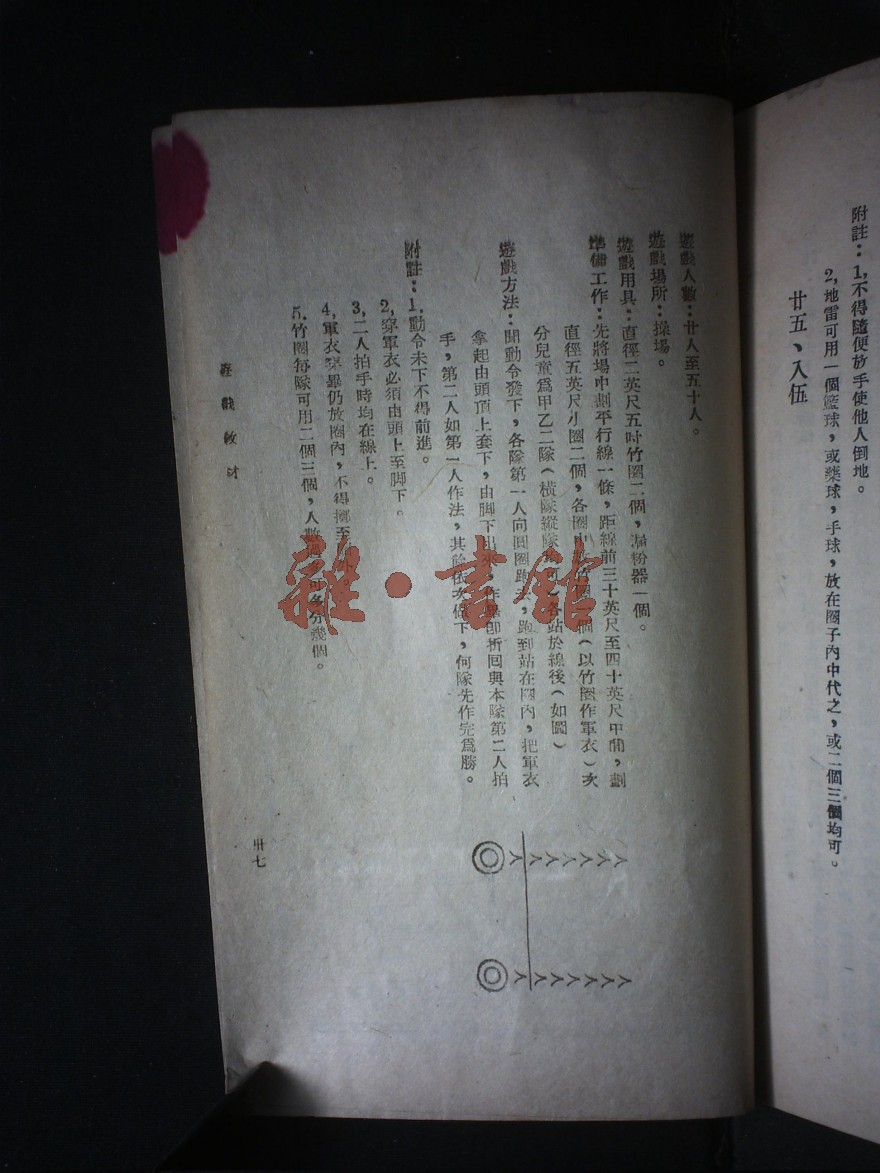 附註：1,不得隨便放手使他人倒地。
2,地雷可用一個籃球，或壘球，手球，放在圈子內中代之，或二個三個均可。
廿五、入伍
遊戲人數：廿人至五十人。
遊戲場所：操場。
遊戲用具：直徑二英尺五吋竹圈二個，漏粉器一個。
準備工作：先將場中劃平行線一條，距線前三十英尺至四十英尺中間，劃
直徑五英尺小圈二個，各圈中（以竹圈作軍衣）次
分兒童爲甲乙二隊（橫隊縱隊均可）各站於線後（如圖）
遊戲方法：聞動令發下，各隊第一人向圓圈跑去，跑到站在圈內，把軍衣
拿起由頭頂上套下，由脚下出來，作畢卽折回與本隊第二人拍
手，第二人如第一人作法，其餘依次做下，何隊先作完爲勝。
附註：1.動令未下不得前進。
2,穿軍衣必須由頭上至脚下。
3,二人拍手時均在線上。
4,軍衣穿畢仍放圈內，不得擲至
5.竹圈每隊可用二個三個，人數可多分幾個。
遊戲教材
卅七
雜·書館